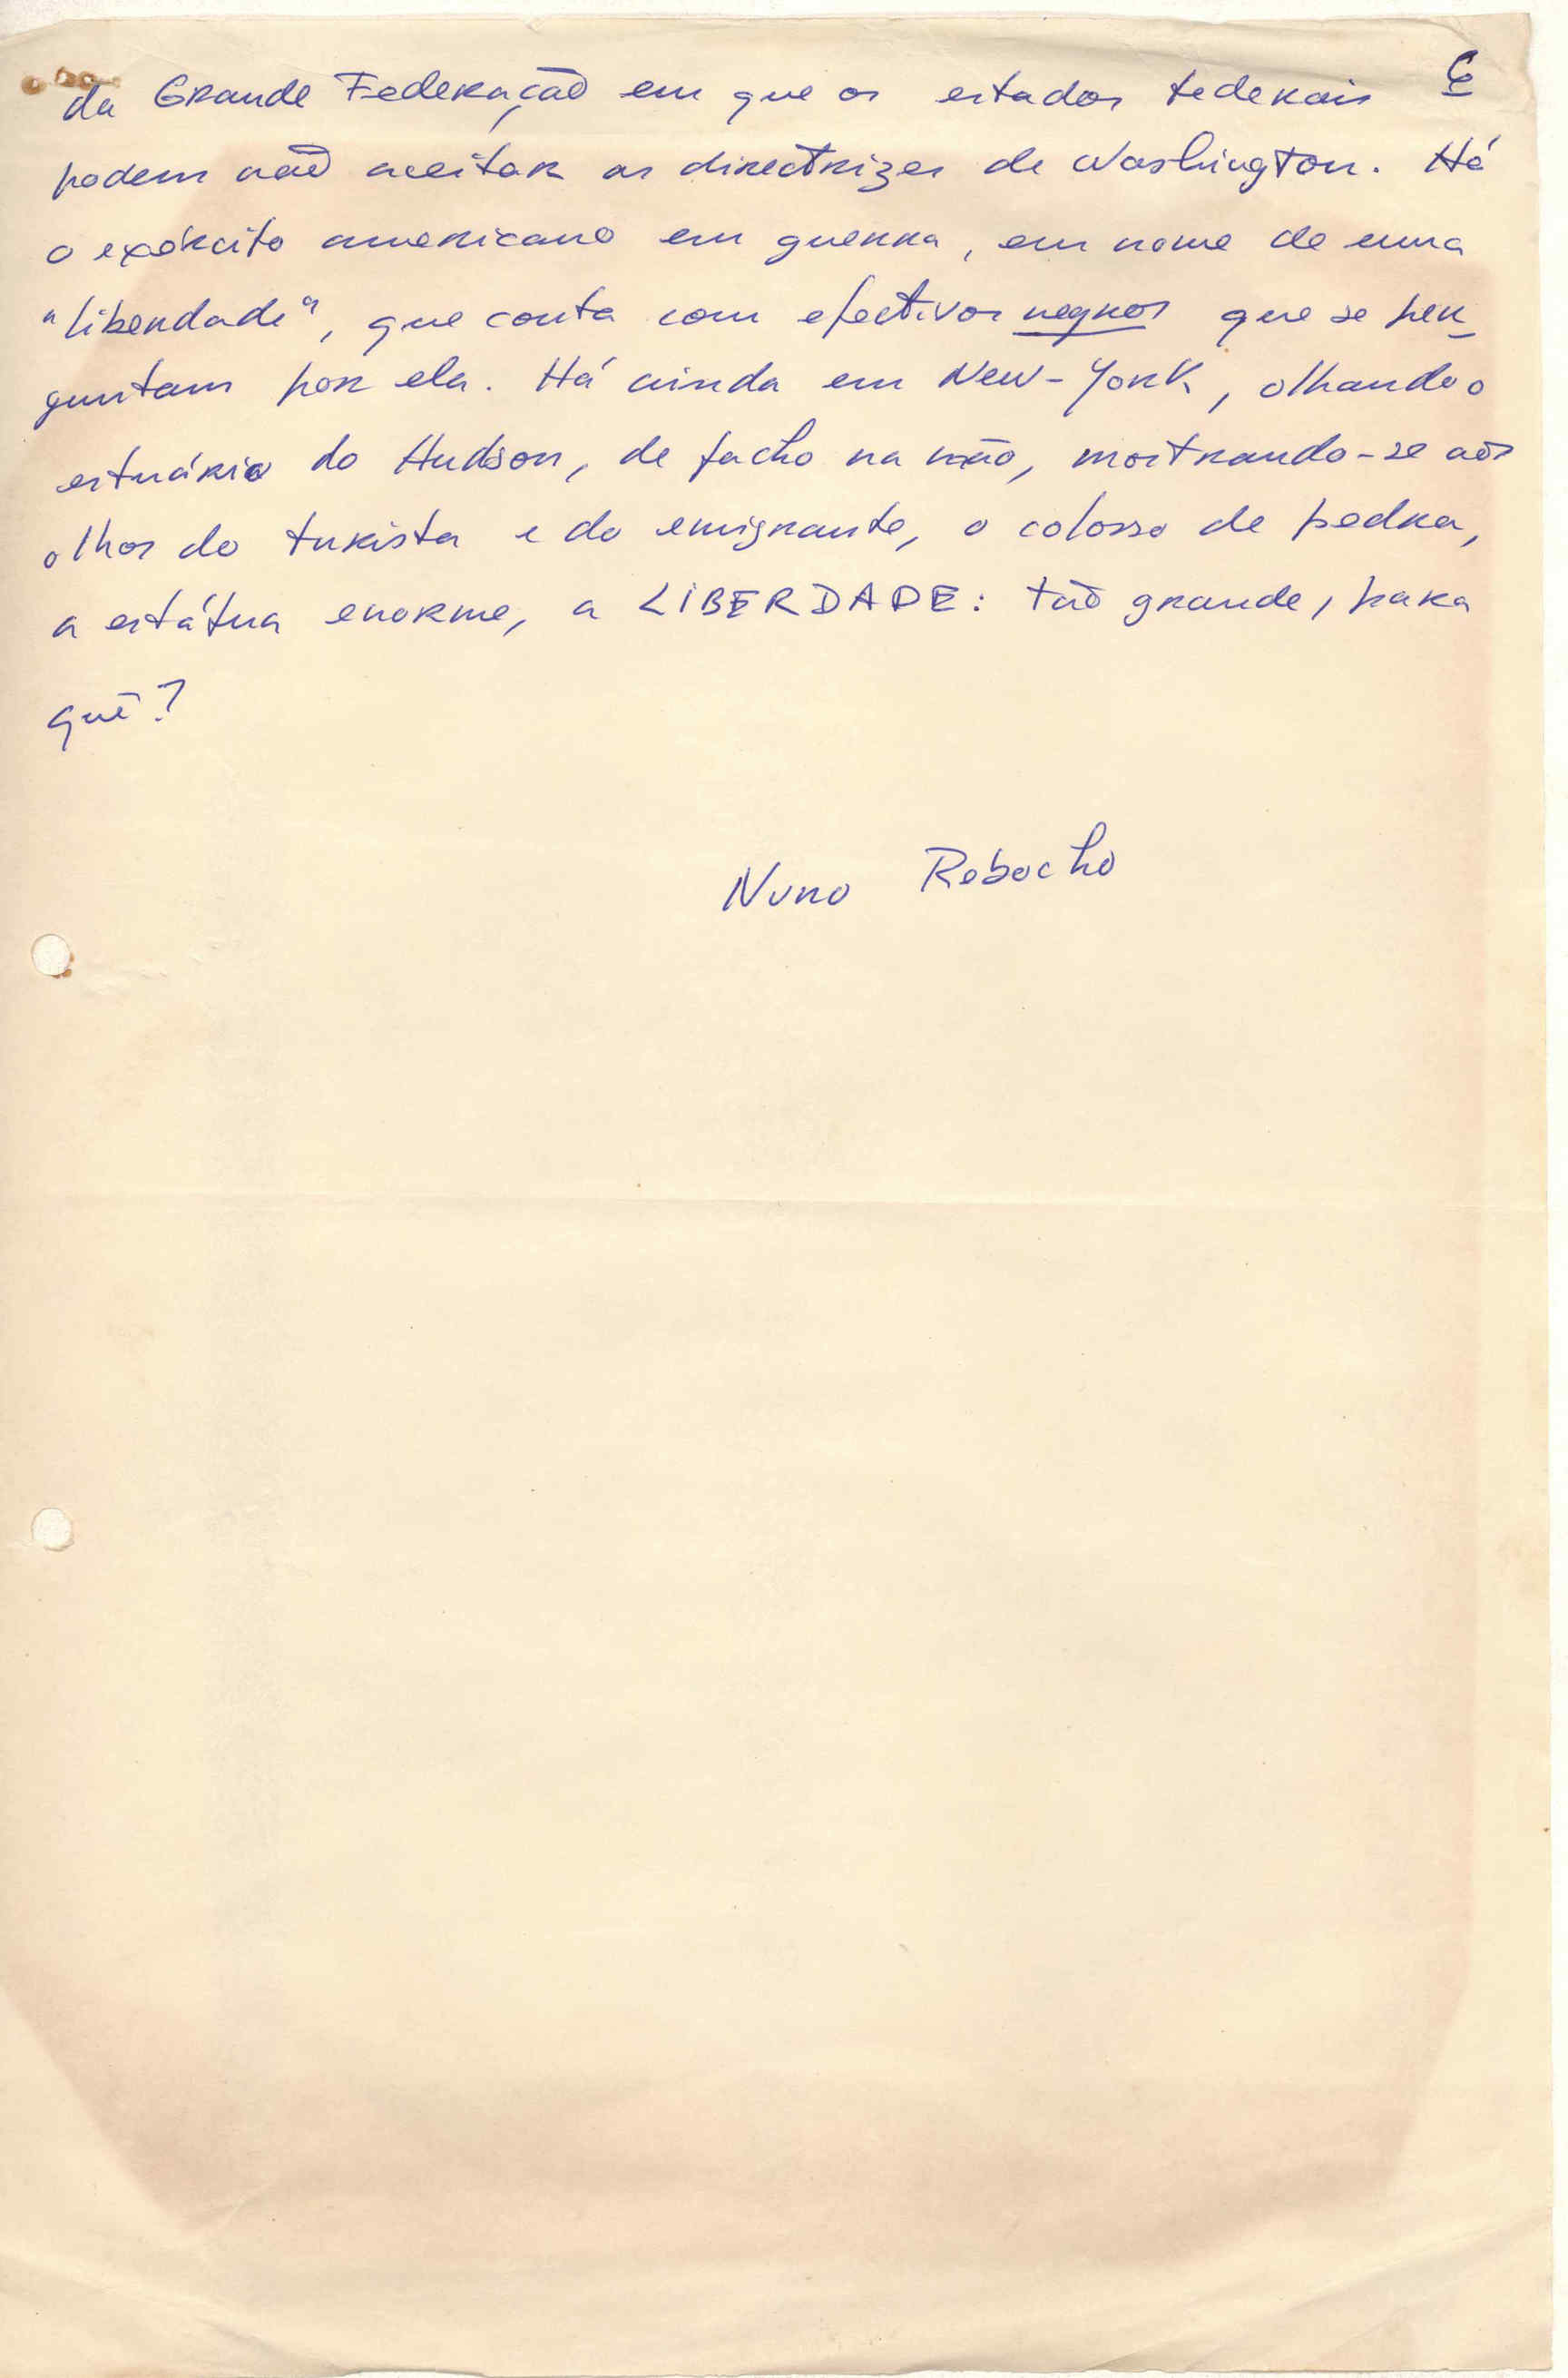 6
da Grande Federação em que os estados federais
podem não aceitar as directrizes de Washington. Há
o exército americano em guerra, em nome de uma
"liberdade", que conta com efectivos negros que se per-
guntam por ela. Há ainda em New-York, olhando o
estuário do Hudson, de facho na mão, mostrando-se aos
olhos do turista e do emigrante, o colosso de pedra,
a estátua enorme, a LIBERDADE: tão grande, para
quê?
Nuno Rebocho